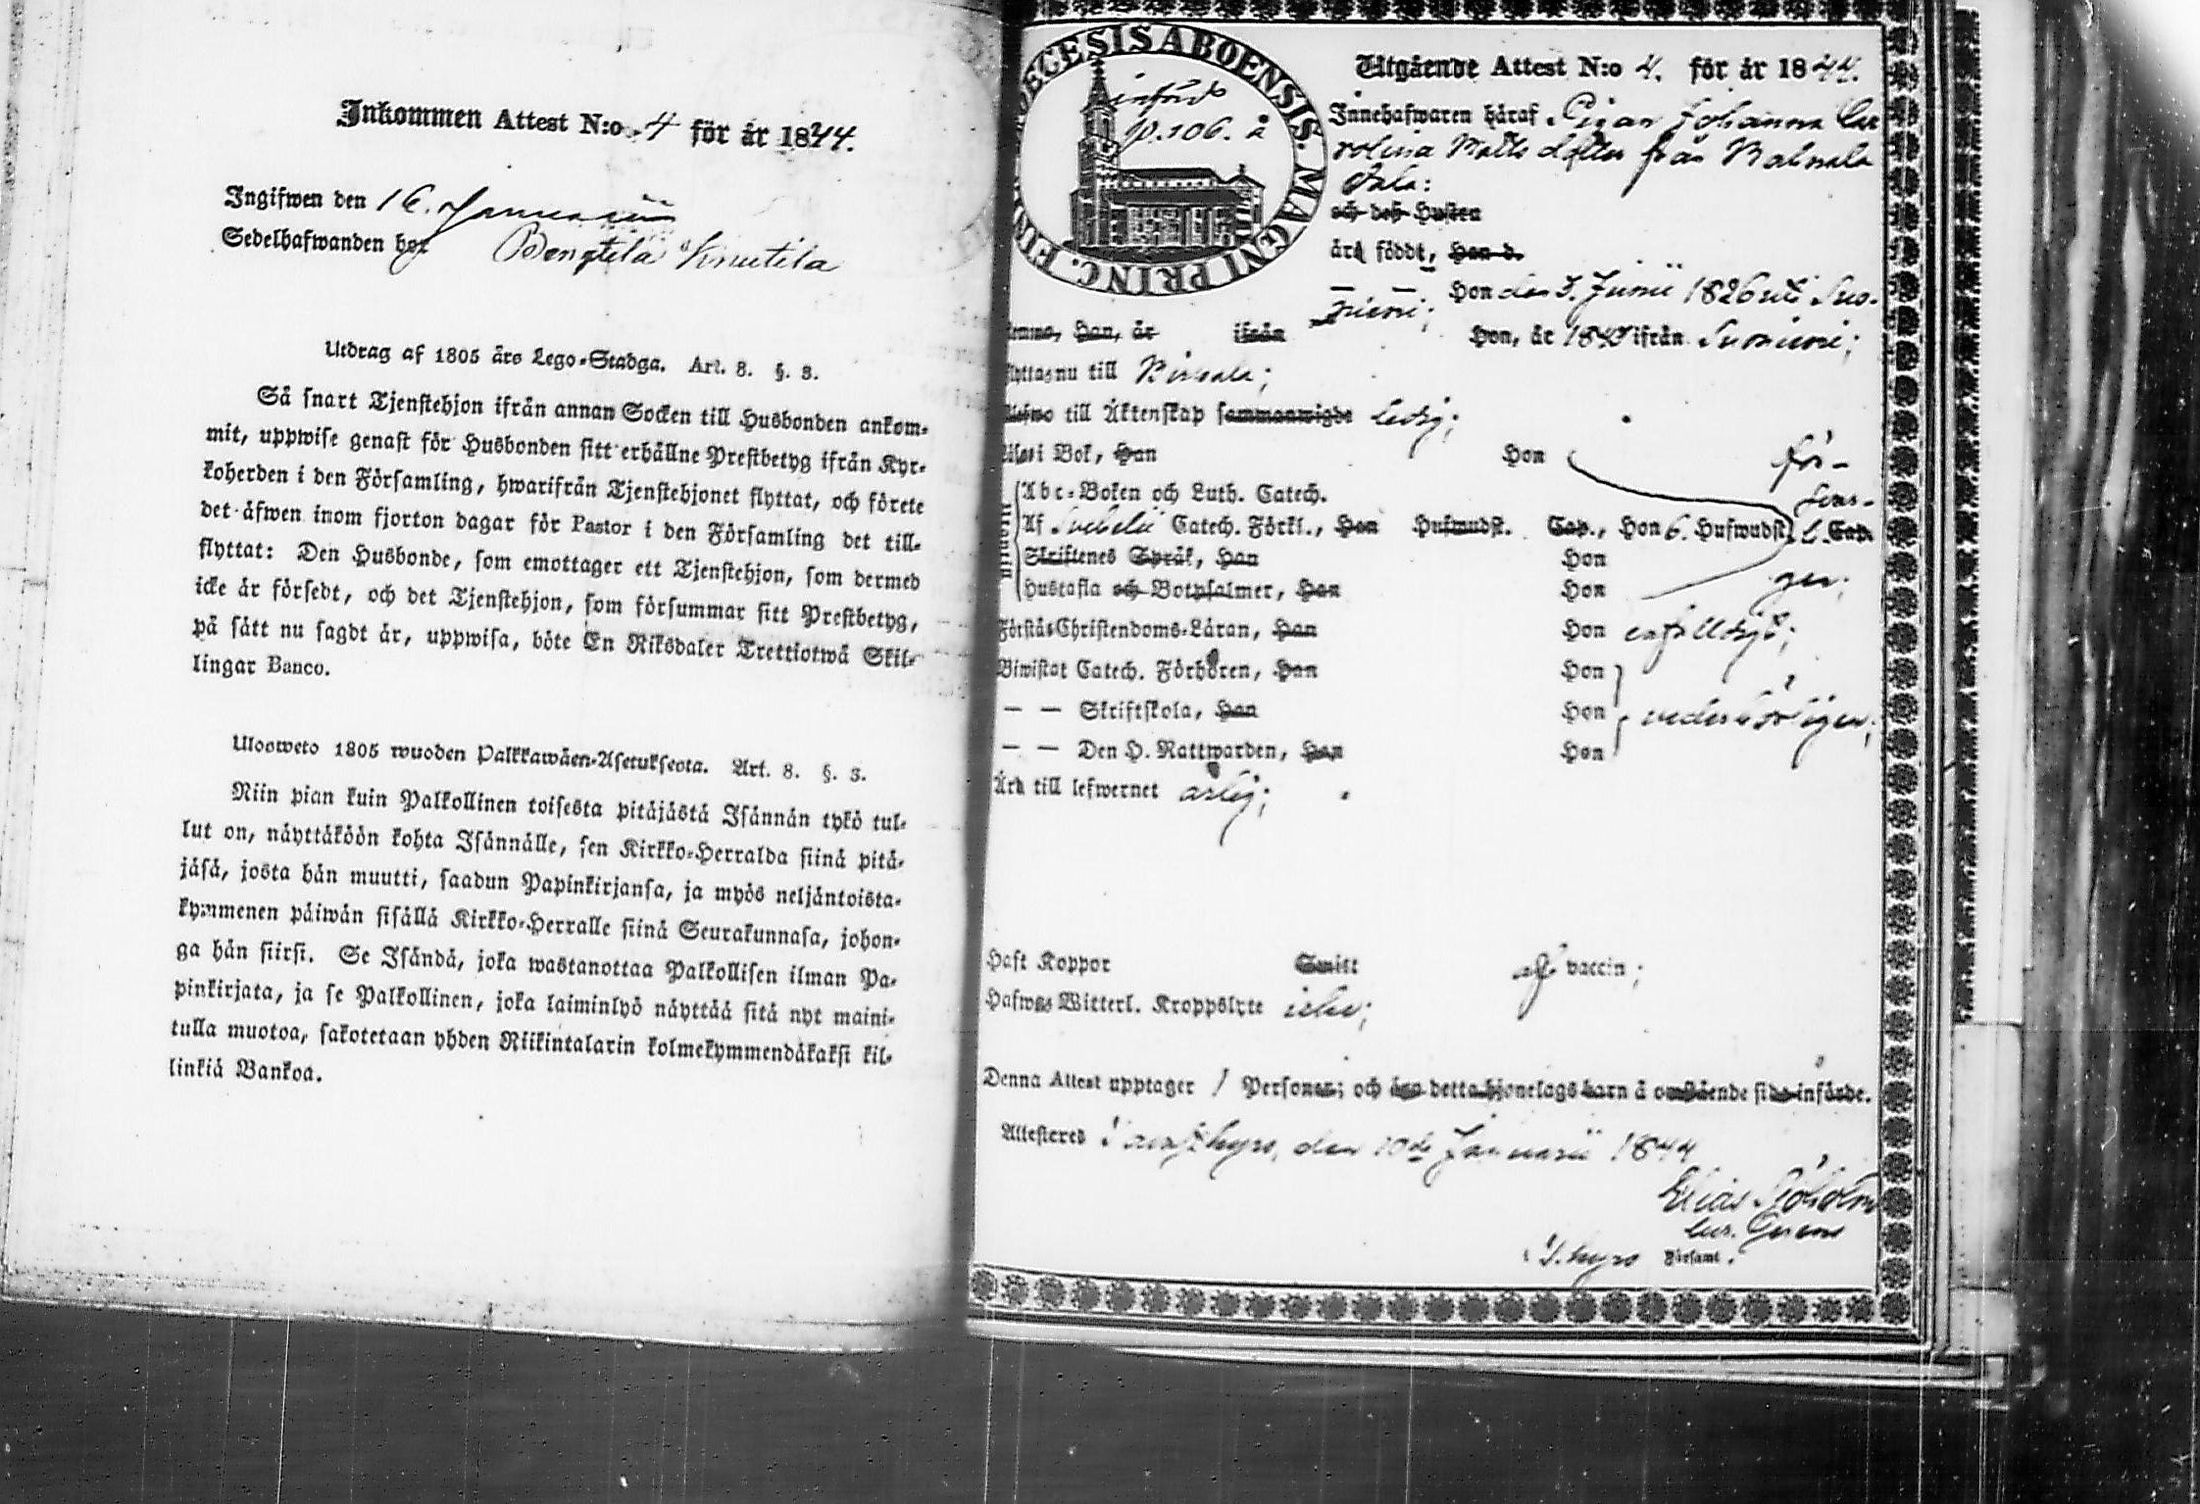 Inkommen Attest N:o 4 för år 1844.
Ingifwen den 16. Januarii
Sedelhafwanden hos Bengtilä Knutila
Utdrag af 1805 års Lego-Stadga. Art. 8. §. 3.
Så snart Tjenstehjon ifrån annan Socken till Husbonden ankom-
mit, uppwise genast för Husbonden sitt erhållne Prestbetyg ifrån Kyr-
koherden i den Församling, hwarifrån Tjenstehjonet flyttat, och förete
det äfwen inom fjorton dagar för Pastor i den Församling det till-
flyttat: Den Husbonde, som emottager ett Tjenstehjon, som dermed
icke är försedt, och det Tjenstehjon, som försummar sitt Prestbetyg,
på sätt nu sagdt är, uppwisa, böte En Riksdaler Trettiotwå Skil-
lingar Banco.
Ulosweto 1805 wuoden Palkkawäen-Asetuksesta. Art. 8. §. 3.
Niin pian kuin Palkollinen toisesta pitäjästä Isännän tykö tul-
lut on, näyttäköön kohta Isännälle, sen Kirkko-Herralda siinä pitä-
jäsä, josta hän muutti, saadun Papinkirjansa, ja myös neljäntoista-
kymmenen päiwän sisällä Kirkko-Herralle siinä Seurakunnasa, johon-
ga hän siirsi. Se Isändä, joka wastanottaa Palkollisen ilman Pa-
pinkirjata, ja se Palkollinen, joka laiminlyö näyttää sitä nyt maini-
tulla muotoa, sakotetaan yhden Riikintalarin kolmekymmendäkaksi kil-
linkiä Bankoa.
DIOECESIS ABOENSIS. MAGNI PRINC. FINL.
införd
p. 106. å
Utgående Attest N:o 4. för år 1844.
Innehafwaren häraf Pigan Johanna Ca-
rolina Matts dotter från
och des Hustru
är född, Han d.
Hon den 3. Junii 1826 uti Suo-
niemi;
Han, år ifrån Hon, år ifrån Suoniemi;
flyttas nu till
till Äktenskap sammanwigde ledig;
i Bok, Han Hon för-
Abc-Boken och Luth. Catech. swar-
Utantill
Af Svebelii Catech. Förkl., Han Hufwudst. Cap., Hon 6. Hufwudst. Cap.
Skriftenes Språk, Han Hon
Hustafla och Botpsalmer, Han Hon gen;
Förstår Christendoms-Läran, Han Hon enfaldigt;
Biwistat Catech. Förhören, Han Hon
— — Skriftskola, Han Hon vederbörligen;
— — Den H. Nattwarden, Han Hon
Är till lefwernet ärlig;
Haft Koppor Smitt af vaccin;
Hafwa Witterl. Kroppslyte icke;
Denna Attest upptager 1 Person; och äro detta hjonelags barn å omstående sida införde.
Attesteres i Tavastkyro, den 10de Januarii 1844
Elias Sjöholm
i T.kyro Församl.